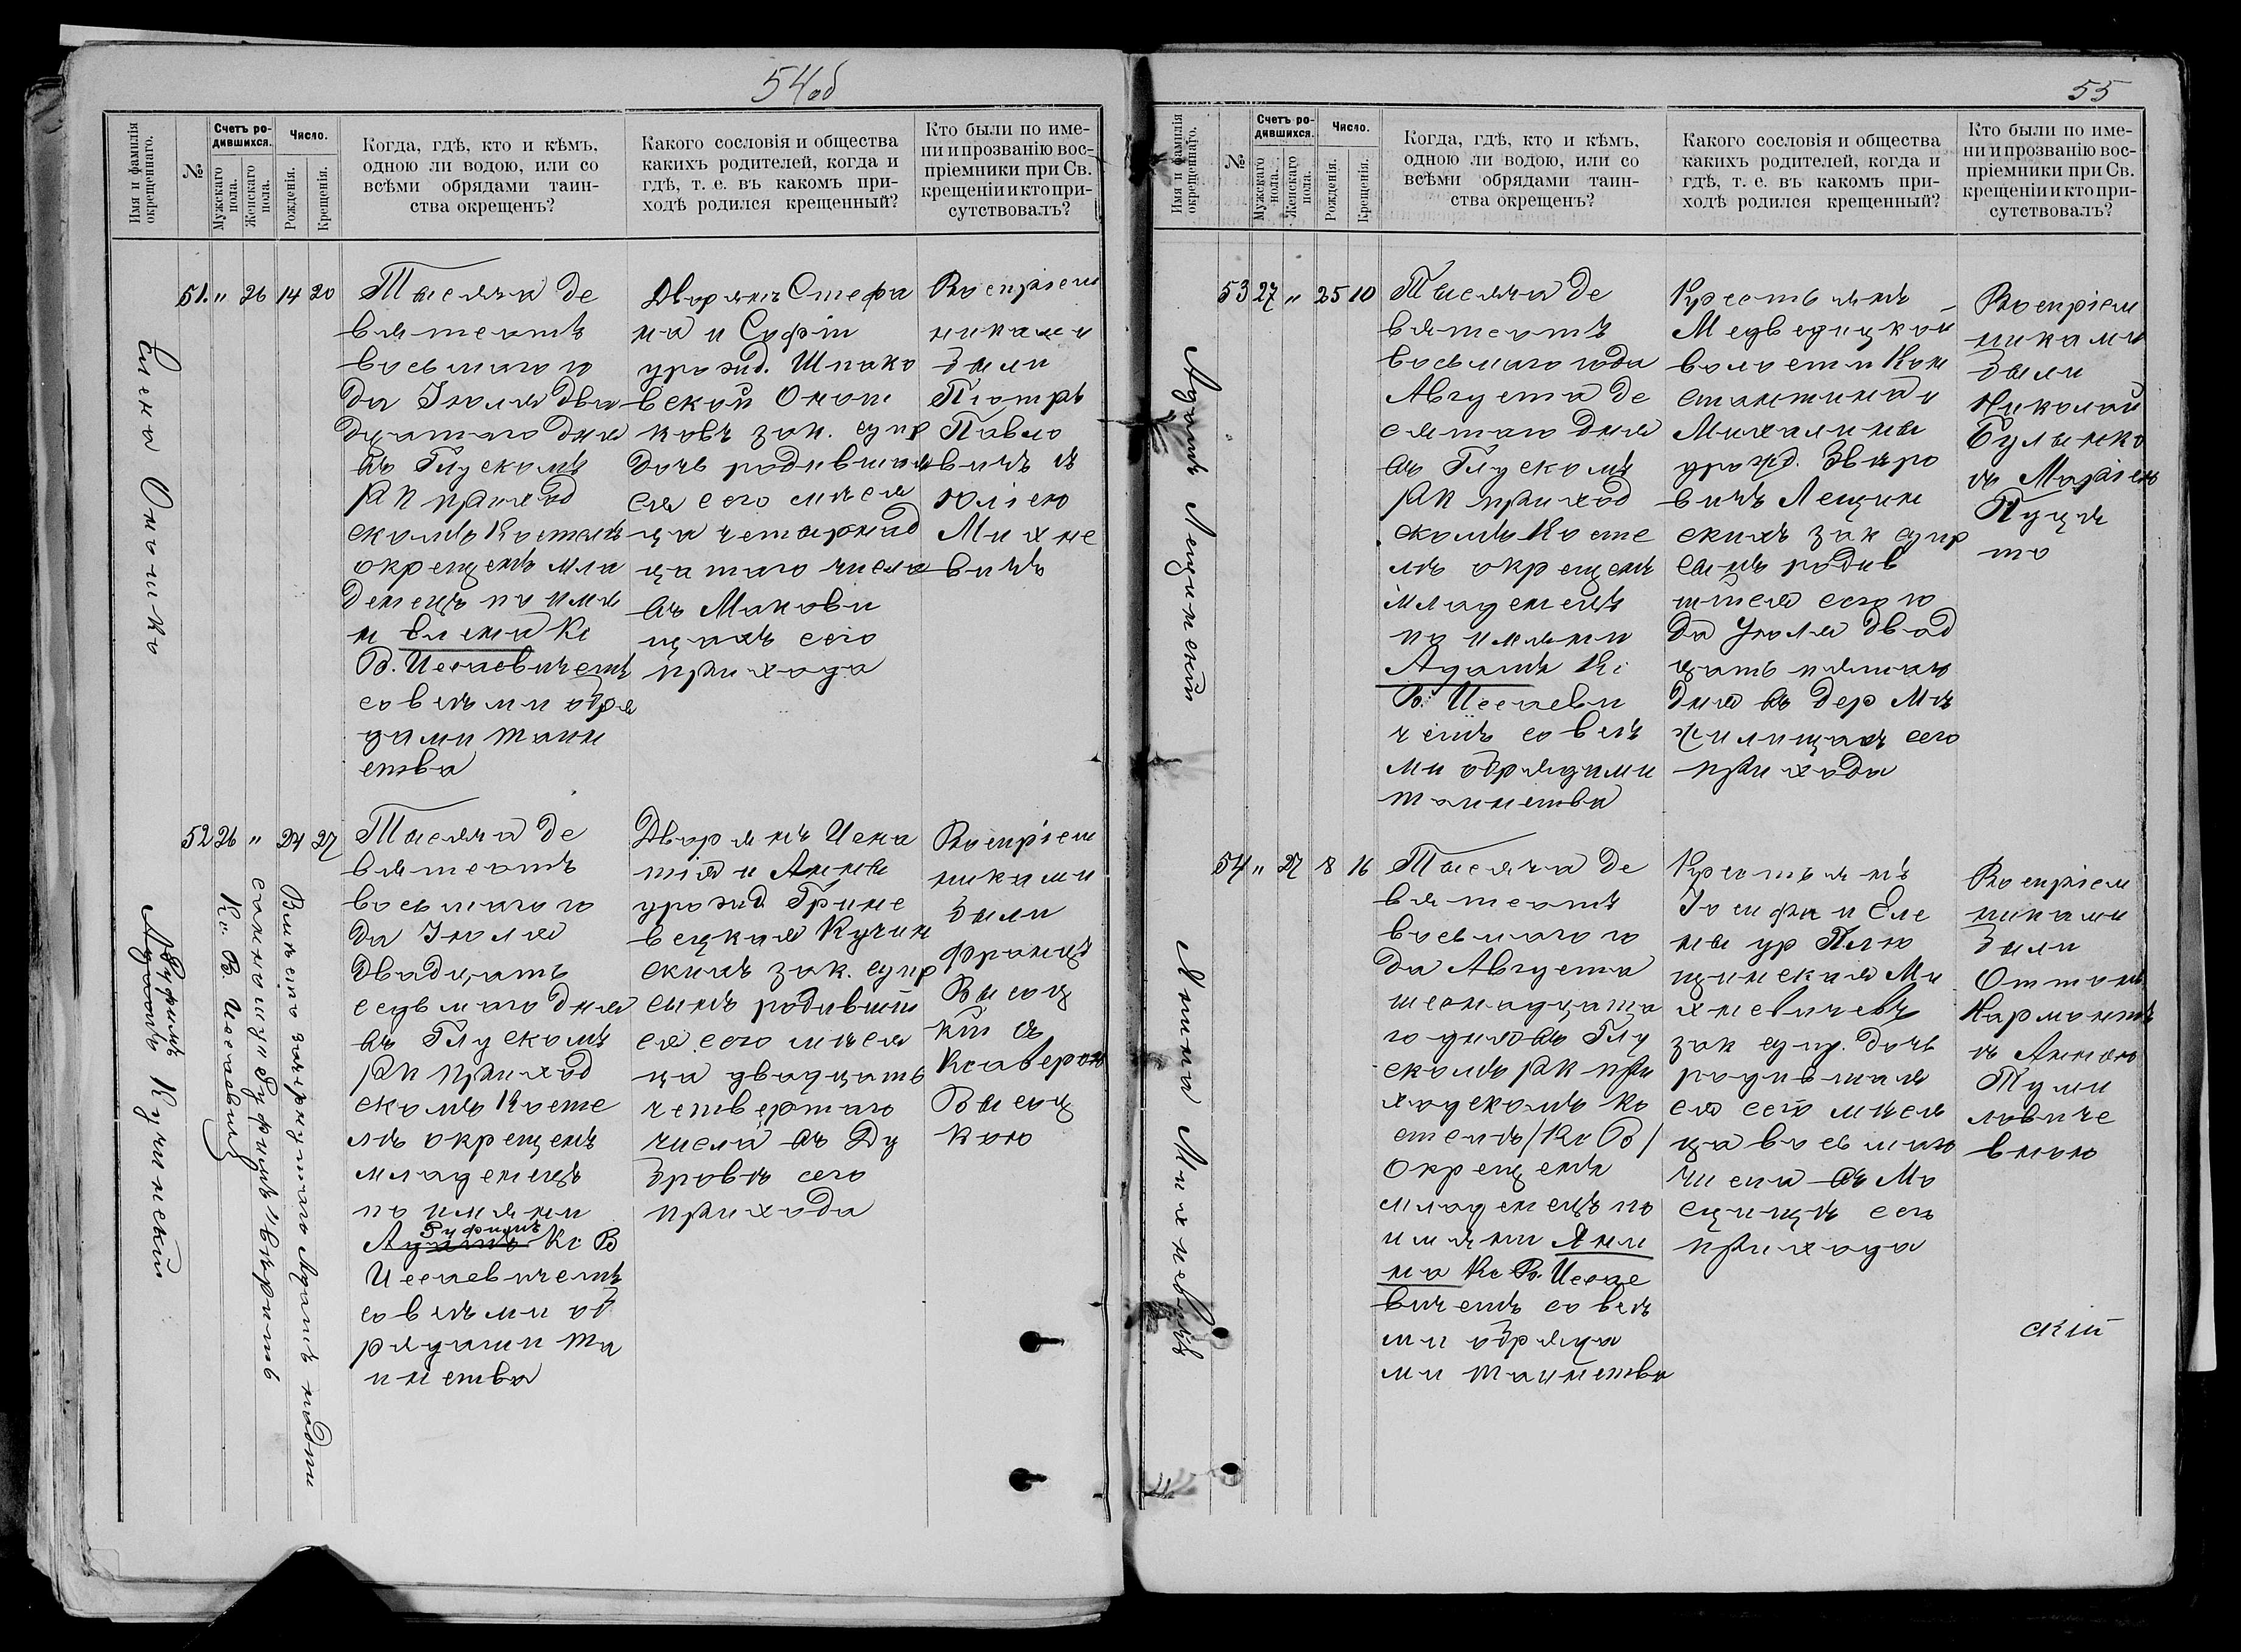 54об
Имя и фамилія
окрещеннаго.
№
Счетъ ро-
дившихся.
Мужскаго
пола.
Женскаго
пола.
Число.
Рожденія.
Крещенія.
Когда, гдѣ, кто и кѣмъ,
одною ли водою, или со
всѣми обрядами таин-
ства окрещенъ?
Какого сословія и общества
какихъ родителей, когда и
гдѣ, т. е. въ какомъ при-
ходѣ родился крещенный?
Кто были по име-
ни и прозванію вос-
пріемники при Св.
крещеніи и кто при-
сутствовалъ?
51. " 26 14 20
Тысяча де
вятьсотъ
восьмаго го
да Іюля два
дцатаго дня
въ Глускомъ
РК приход
скомъ Костелѣ
окрещенъ мла
денецъ по имя
ни Елена Кс
В. Иссаевичемъ
со всѣми обря
дами таин
ства
Дворянъ Стефа
на и Софіи
урожд. Шпако
вской Онош
ковъ зак. супр
дочь родившая
ся сего мѣся
ца четырнад
цатаго числа
въ Макови
щахъ сего
прихода
Воспріем
никами
были
Піотръ
Павло
вичъ съ
Юліею
Михне
вичъ
52 26 " 24 27
Тысяча де
вятьсотъ
восьмаго го
да Іюля
двадцать
седьмаго дня
въ Глускомъ
РК приход
скомъ Косте
лѣ окрещенъ
младенецъ
по имяни
Руфинъ
Адамъ Кс В
Иссаевичемъ
со всѣми об
рядами та
инства
Дворянъ Игна
тія и Анны
урожд. Грине
вецкая Кучин
скихъ зак. супр
сынъ родившій
ся сего мѣся
ца двадцать
четвертаго
числа въ Ду
бровѣ сего
прихода
Воспріем
никами
были
Францъ
Высоц
кій съ
Ксаверою
Высоц
кою
Руфинъ
Адамъ Кучинскій
Вмѣсто зачеркнутаго Адамъ надпи
санному Руфинъ вѣрить
Кс. В. Иссаевичъ
55
Имя и фамилія
окрещеннаго.
№
Счетъ ро-
дившихся.
Мужскаго
пола.
Женскаго
пола.
Число.
Рожденія.
Крещенія.
Когда, гдѣ, кто и кѣмъ,
одною ли водою, или со
всѣми обрядами таин-
ства окрещенъ?
Какого сословія и общества
какихъ родителей, когда и
гдѣ, т. е. въ какомъ при-
ходѣ родился крещенный?
Кто были по име-
ни и прозванію вос-
пріемники при Св.
крещеніи и кто при-
сутствовалъ?
Адамъ Лещинскій
53 27 " 25 10
Тысяча де
вятьсотъ
восьмаго года
Августа де
сятаго дня
въ Глускомъ
РК приход
скомъ Косте
лѣ окрещенъ
младенецъ
по имяни
Адамъ Кс
В. Иссаеви
чемъ со всѣ
ми обрядами
таинства
Крестьянъ
Медвѣдицкой
волости Кон
стантина и
Михалины
урожд. Звѣро
вичъ Лещин
скихъ зак супр
сынъ родив
шійся сего го
да Іюля двад
цать пятаго
дня въ дер Мѣ
жилищахъ сего
прихода
Воспріем
никами
были
Николай
Булынко
съ Маріею
Пуця
то
54 " 27 8 16
Тысяча де
вятьсотъ
восьмаго го
да Августа
шеснадцата
го дня въ Глу
скомъ РК при
ходскомъ ко
стелѣ (Кс В)
окрещенъ
младенецъ по
имяни Яни
на Кс В. Иссае
вичемъ со всѣ
ми обряда
ми таинства
Крестьянъ
Іосифа и Еле
ны ур Плю
щинская Ми
хневичевъ
зак супр. дочь
родившая
ся сего мѣся
ца восьмаго
числа въ Мо
сѣицѣ сего
прихода
Воспріем
никами
были
Оттонъ
Нармонтъ
съ Анною
Туми
ловиче
вною
скій